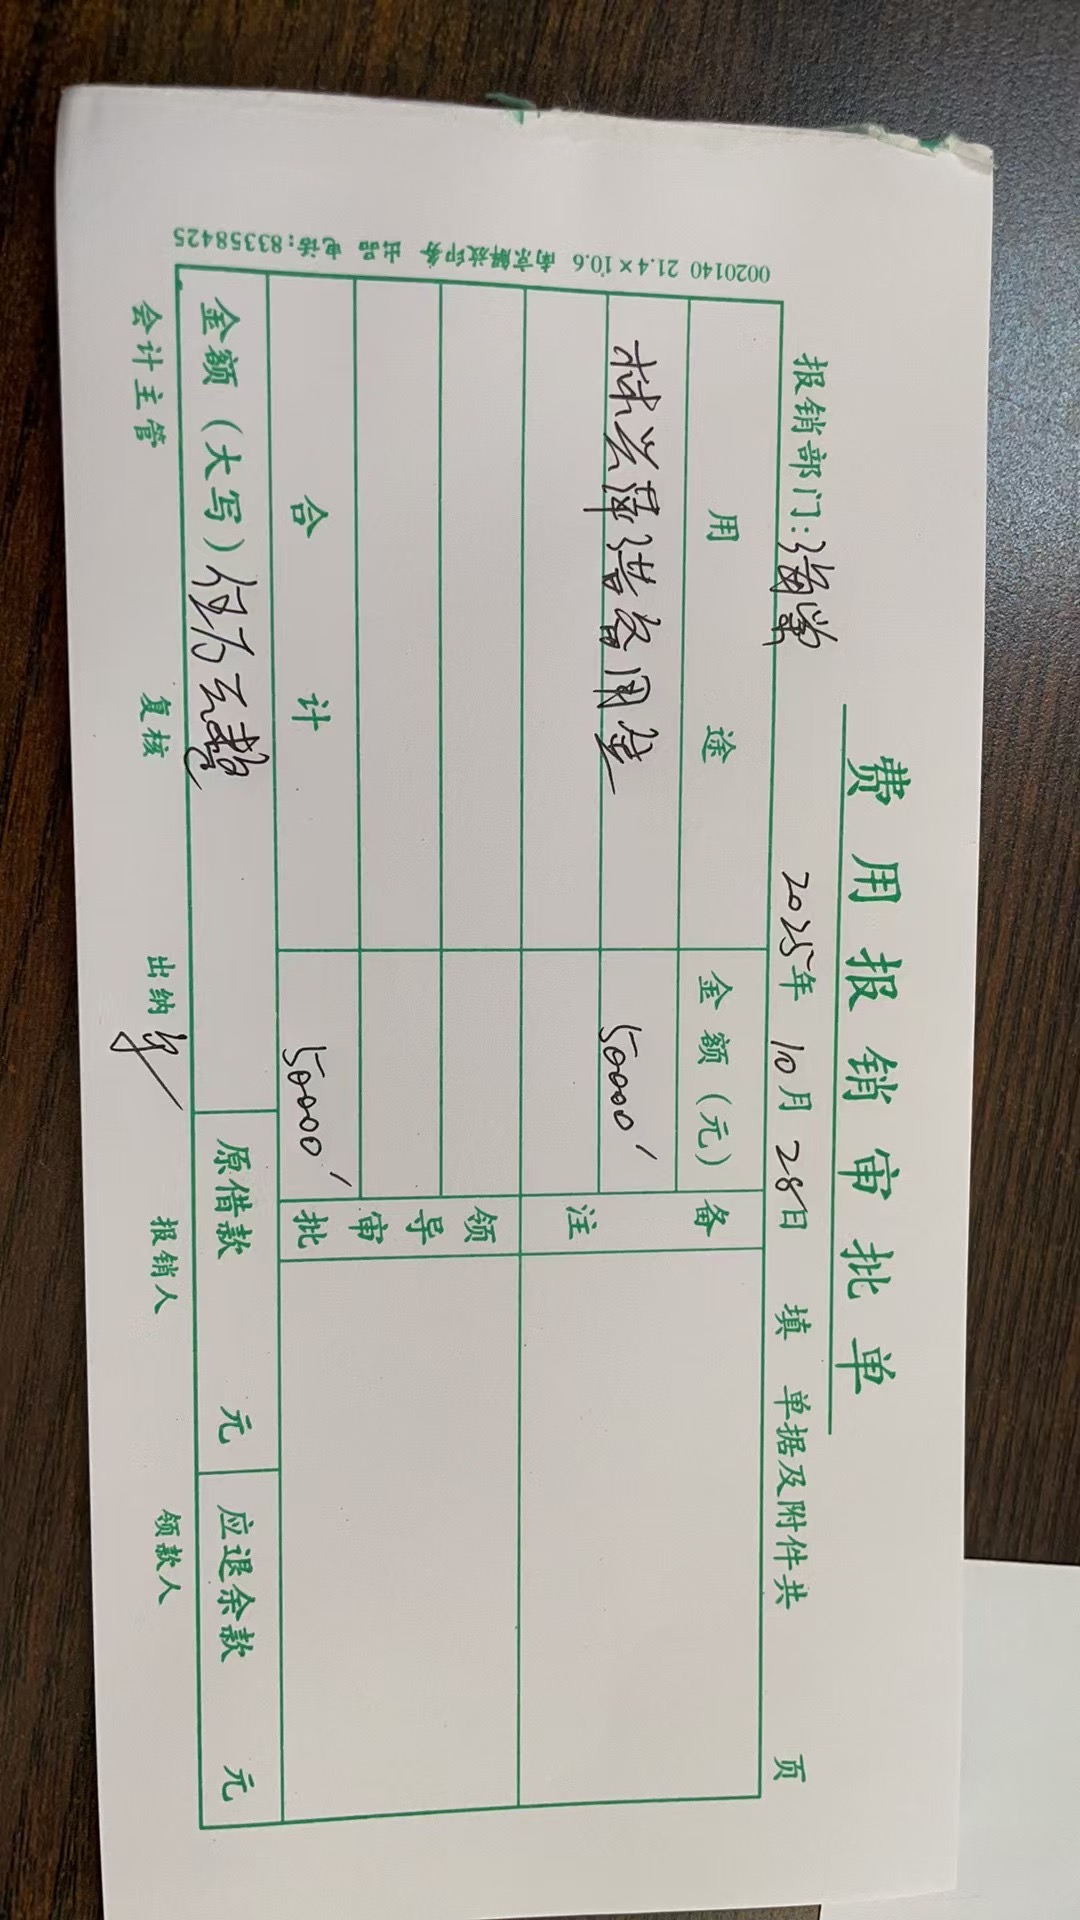 费用报销审批单
报销部门：海棠 2025年 10月 28日 填 单据及附件共 页
用途 金额（元） 备注
林兴萍借备用金 50000'
领导审批
合计 50000'
金额（大写）伍万元整 原借款 元 应退余款 元
会计主管 复核 出纳 报销人 领款人
0020140 21.4×10.6 南京解放印务 出品 电话：83358425